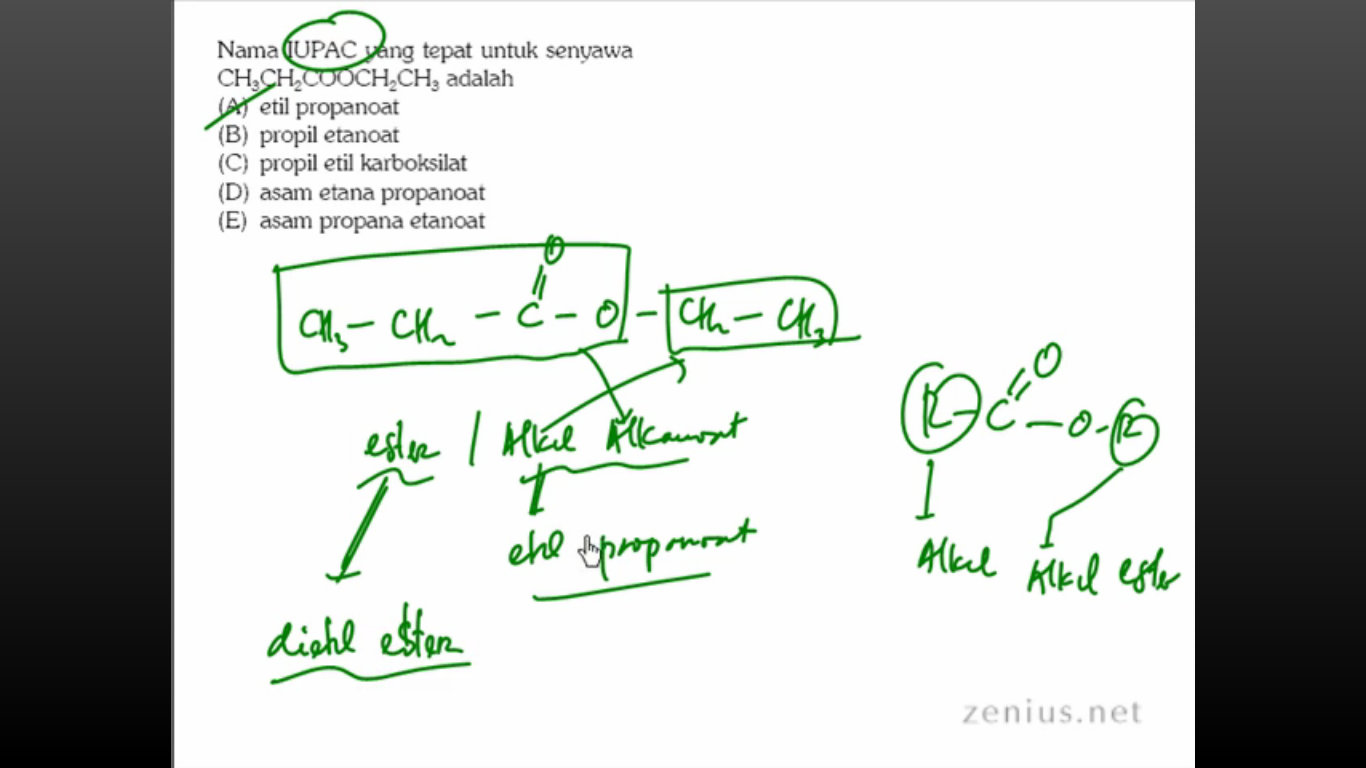 Nama IUPAC yang tepat untuk senyawa
CH₃CH₂COOCH₂CH₃ adalah
(A) etil propanoat
(B) propil etanoat
(C) propil etil karboksilat
(D) asam etana propanoat
(E) asam propana etanoat
O
CH₃ – CH₂ – C – O – CH₂ – CH₃
O
R – C – O – R
ester / Alkil Alkanoat
etil propanoat
Alkil Alkil ester
dietil ester
zenius.net